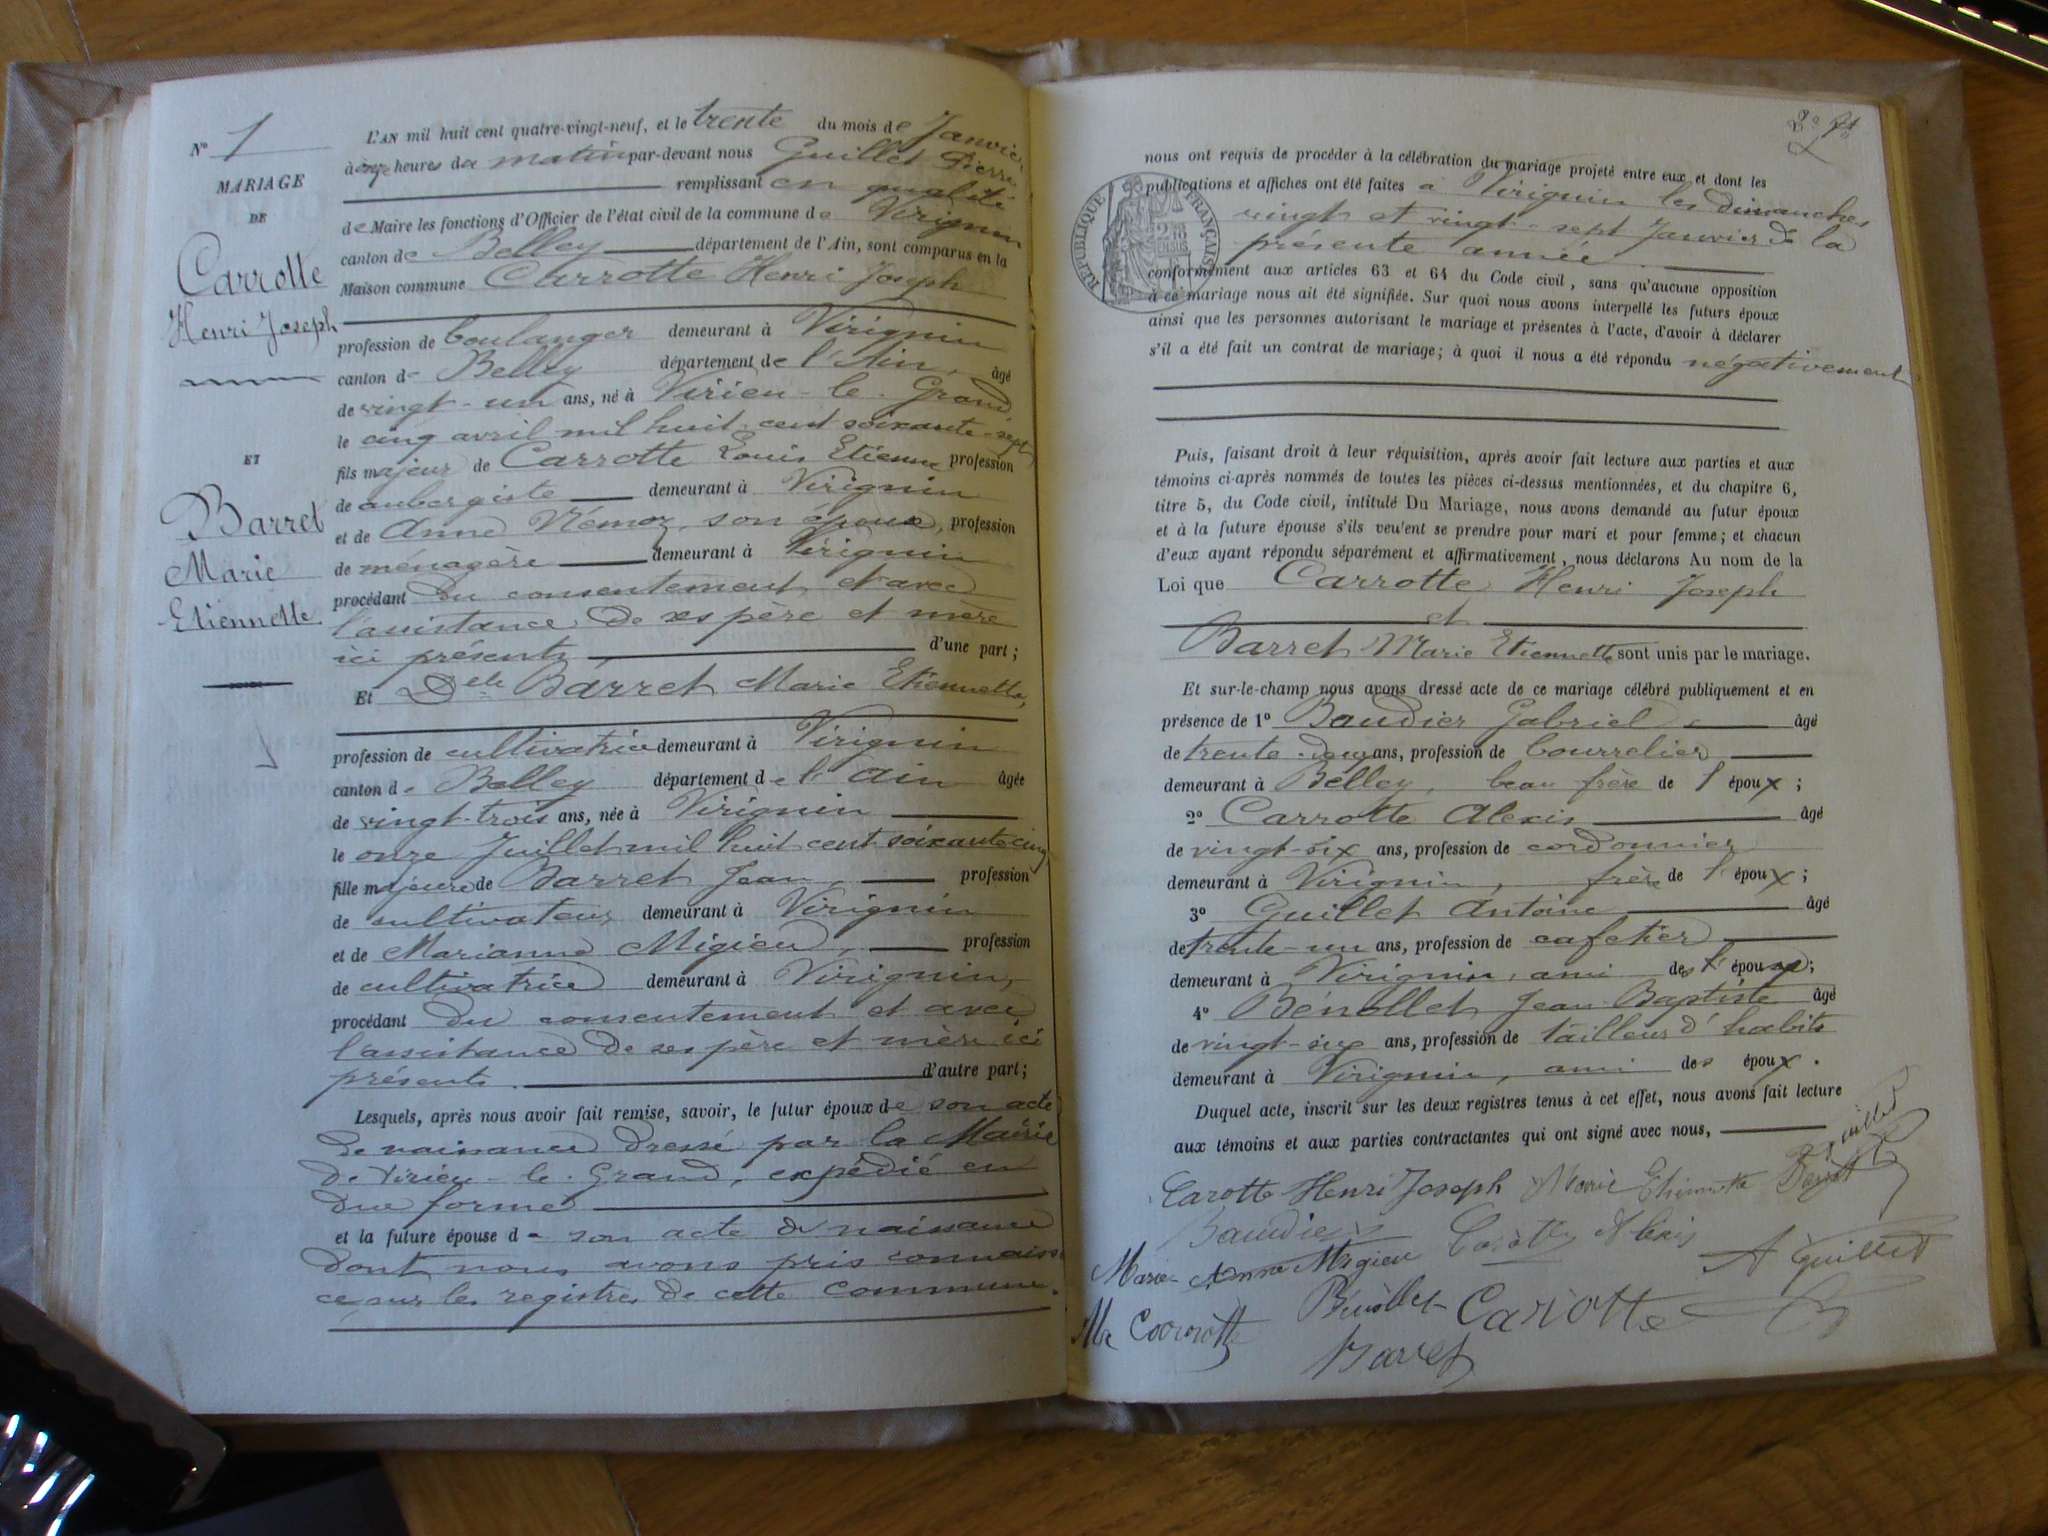 N° 1
MARIAGE
DE
Carrotte
Henri Joseph
ET
Barret
Marie
Etiennette
L'AN mil huit cent quatre-vingt-neuf, et le trente du mois de Janvier
à onze heures du matin par-devant nous Guillet Pierre
remplissant en qualité
de Maire les fonctions d'Officier de l'état civil de la commune de Virignin
canton de Belley département de l'Ain, sont comparus en la
Maison commune Carrotte Henri Joseph
profession de boulanger demeurant à Virignin
canton de Belley département de l'Ain, âgé
de vingt-un ans, né à Virieu-le-Grand
le cinq avril mil huit cent soixante-sept
fils majeur de Carrotte Louis Etienne profession
de aubergiste demeurant à Virignin
et de Anne Némoz, son épouse, profession
de ménagère demeurant à Virignin
procédant du consentement et avec
l'assistance de ses père et mère
ici présents d'une part ;
Et Delle Barret Marie Etiennette,
profession de cultivatrice demeurant à Virignin
canton de Belley département de l'Ain âgée
de vingt-trois ans, née à Virignin
le onze Juillet mil huit cent soixante cinq
fille majeure de Barret Jean, profession
de cultivateur, demeurant à Virignin
et de Marianne Migieu, profession
de cultivatrice demeurant à Virignin,
procédant du consentement et avec
l'assistance de ses père et mère ici
présents. d'autre part ;
Lesquels, après nous avoir fait remise, savoir, le futur époux de son acte
de naissance dressé par la Mairie
de Virieu-le-Grand, expédié en
due forme
et la future épouse de son acte de naissance
dont nous avons pris connaissan
ce sur les registres de cette commune.
nous ont requis de procéder à la célébration du mariage projeté entre eux et dont les
publications et affiches ont été faites à Virignin les dimanches
vingt et vingt-sept Janvier de la
présente année.
RÉPUBLIQUE FRANÇAISE
conformément aux articles 63 et 64 du Code civil, sans qu'aucune opposition
à ce mariage nous ait été signifiée. Sur quoi nous avons interpellé les futurs époux
ainsi que les personnes autorisant le mariage et présentes à l'acte, d'avoir à déclarer
s'il a été fait un contrat de mariage ; à quoi il nous a été répondu négativement
Puis, faisant droit à leur réquisition, après avoir fait lecture aux parties et aux
témoins ci-après nommés de toutes les pièces ci-dessus mentionnées, et du chapitre 6,
titre 5, du Code civil, intitulé Du Mariage, nous avons demandé au futur époux
et à la future épouse s'ils veulent se prendre pour mari et pour femme ; et chacun
d'eux ayant répondu séparément et affirmativement, nous déclarons Au nom de la
Loi que Carrotte Henri Joseph
et
Barret Marie Etiennette sont unis par le mariage.
Et sur-le-champ nous avons dressé acte de ce mariage célébré publiquement et en
présence de 1° Baudier Gabriel âgé
de trente-deux ans, profession de bourrelier
demeurant à Belley, beau frère de l'époux ;
2° Carrotte Alexis âgé
de vingt-six ans, profession de cordonnier
demeurant à Virignin, frère de l'époux ;
3° Guillet Antoine âgé
de trente-un ans, profession de cafetier
demeurant à Virignin, ami des époux ;
4° Bénollet Jean Baptiste âgé
de vingt-six ans, profession de tailleur d'habits
demeurant à Virignin, ami des époux.
Duquel acte, inscrit sur les deux registres tenus à cet effet, nous avons fait lecture
aux témoins et aux parties contractantes qui ont signé avec nous,
Guillet
Carotte Henri Joseph Marie Etiennette Barret
Baudier Carotte Alexis
Marie Anne Migieu A Guillet
Bénollet Carrotte
Barret